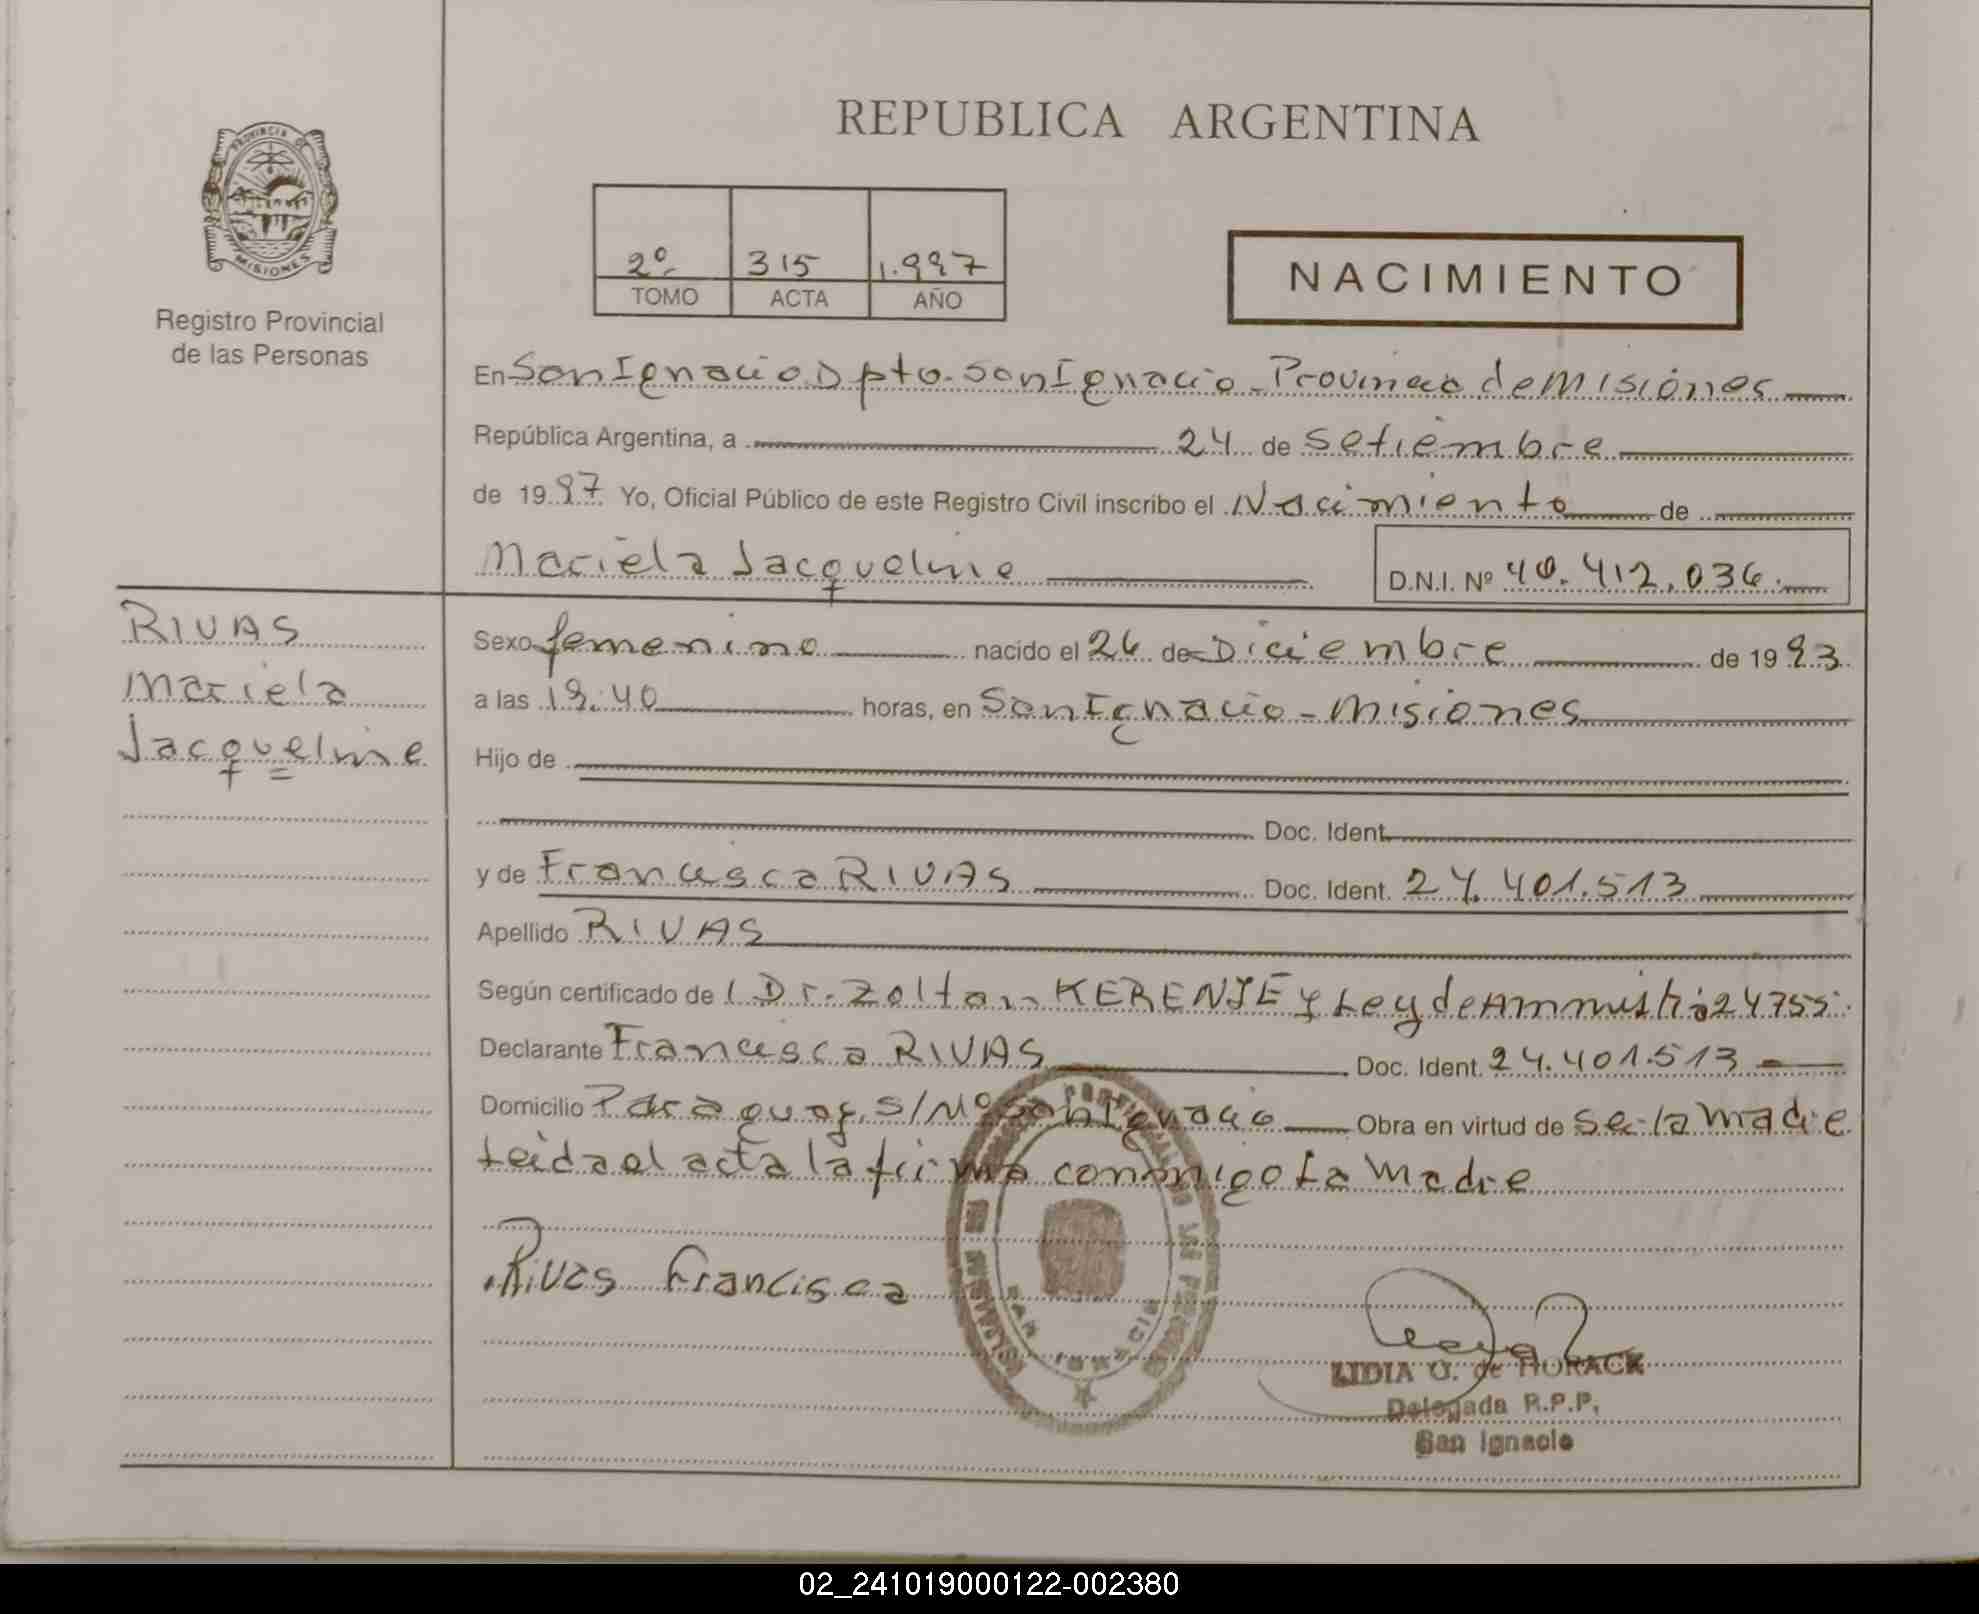 REPUBLICA ARGENTINA
PROVINCIA DE
MISIONES
Registro Provincial
de las Personas
2º 315 1.997
TOMO ACTA AÑO
NACIMIENTO
En San Ignacio Dpto. San Ignacio - Provincia de Misiones
República Argentina, a 24 de Setiembre
de 1997 Yo, Oficial Público de este Registro Civil inscribo el Nacimiento de
Mariela Jacqueline D.N.I. Nº 40.412.036.
RIVAS
Mariela
Jacqueline
Sexo femenino nacido el 26 de Diciembre de 1993
a las 19:40 horas, en San Ignacio - Misiones
Hijo de
Doc. Ident.
y de Francisca RIVAS Doc. Ident. 24.401.513
Apellido RIVAS
Según certificado de Dr. Zoltan KERENJE y Ley de Ammistia 24755
Declarante Francisca RIVAS Doc. Ident. 24.401.513
Domicilio Paraguay S/Nº San Ignacio Obra en virtud de Ser la Madre
Leida el acta la firma conmigo La Madre
Rivas Francisca
SAN IGNACIO
LIDIA O. de HORACK
Delegada R.P.P.
San Ignacio
02_241019000122-002380